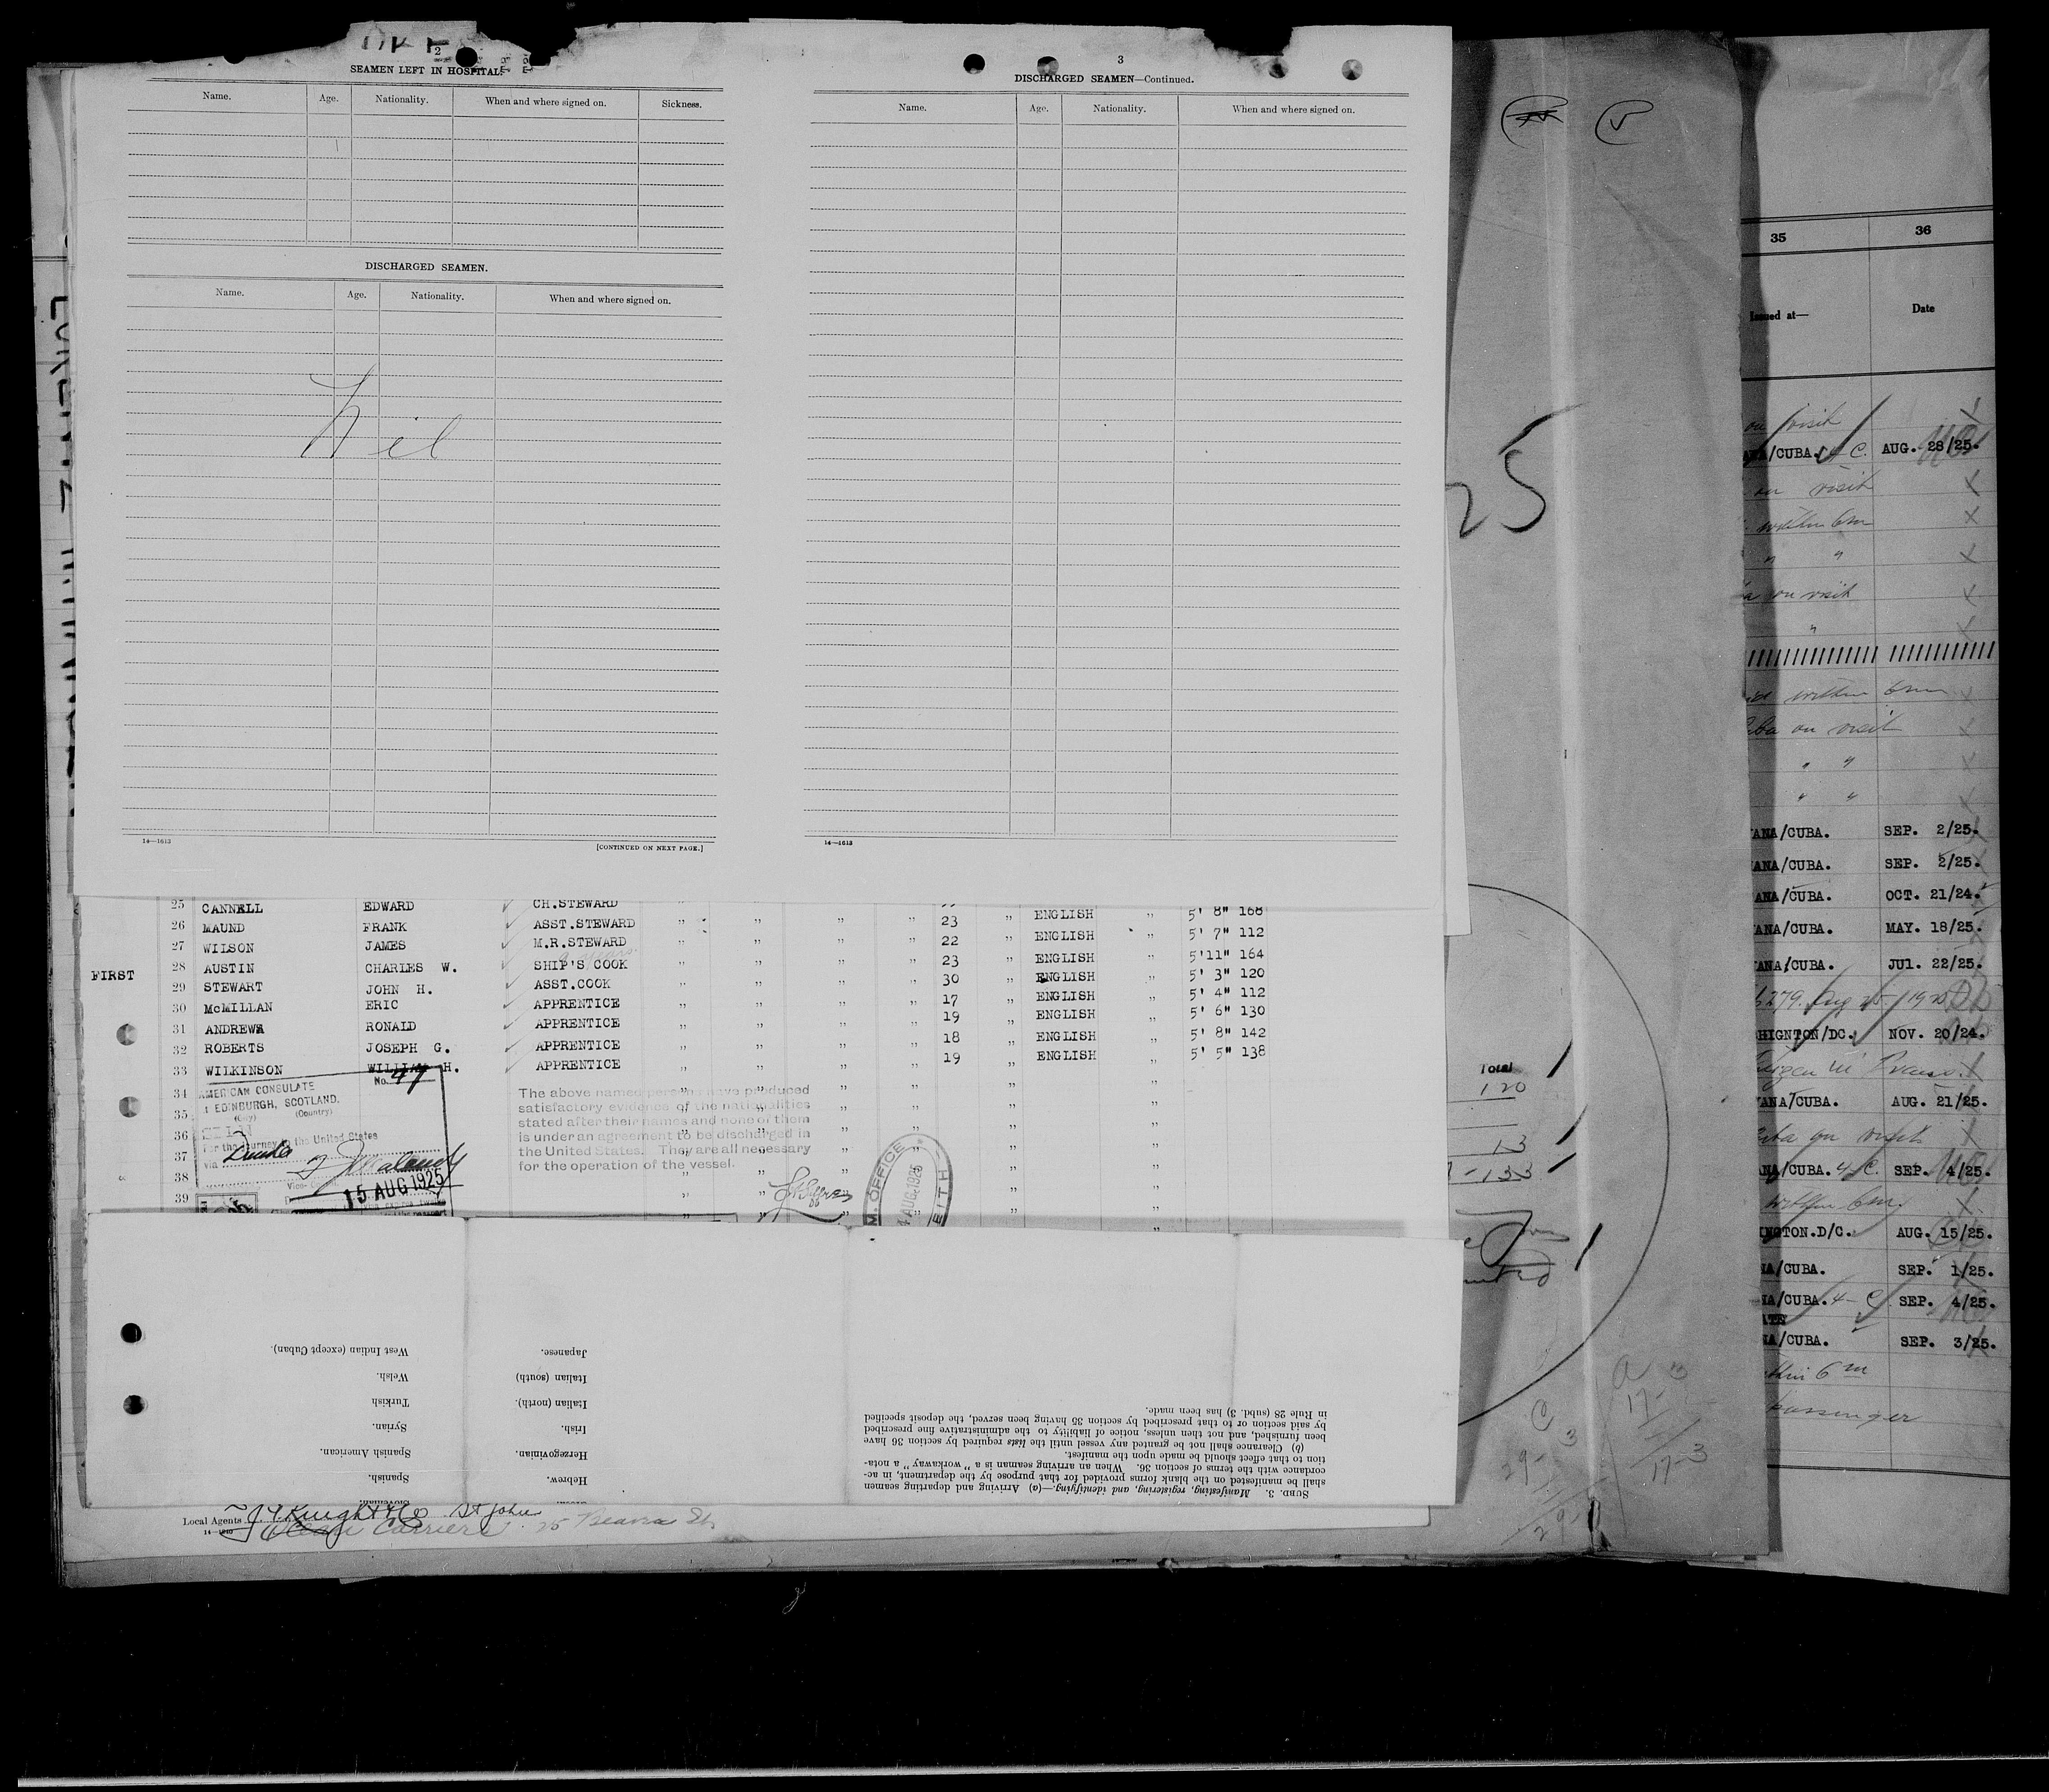 2
SEAMEN LEFT IN HOSPITAL.
Name. Age. Nationality. When and where signed on. Sickness.
DISCHARGED SEAMEN.
Name. Age. Nationality. When and where signed on.
Nil
14—1613
[CONTINUED ON NEXT PAGE.]
3
DISCHARGED SEAMEN—Continued.
Name. Age. Nationality. When and where signed on.
14—1613
25 CANNELL EDWARD CH.STEWARD ENGLISH 5' 8" 168
26 MAUND FRANK ASST.STEWARD 23 ENGLISH 5' 7" 112
27 WILSON JAMES M.R.STEWARD 22 ENGLISH 5'11" 164
FIRST 28 AUSTIN CHARLES W. SHIP'S COOK 23 ENGLISH 5' 3" 120
29 STEWART JOHN H. ASST.COOK 30 ENGLISH 5' 4" 112
30 McMILLAN ERIC APPRENTICE 17 ENGLISH 5' 6" 130
31 ANDREWS RONALD APPRENTICE 19 ENGLISH 5' 8" 142
32 ROBERTS JOSEPH G. APPRENTICE 18 ENGLISH 5' 5" 138
33 WILKINSON WILLIAM H. APPRENTICE 19
34
35
36
37
38
39
No. 47
AMERICAN CONSULATE
EDINBURGH, SCOTLAND.
(City) (Country)
For the journey to the United States
via
Vice-Consul
15 AUG 1925
The above named persons have produced
satisfactory evidence of the nationalities
stated after their names and none of them
is under an agreement to be discharged in
the United States. They are all necessary
for the operation of the vessel.
M. OFFICE
AUG. 1925
EITH
West Indian (except Cuban).
Welsh.
Turkish
Syrian.
Spanish American.
Spanish.
Slovenian.
Japanese.
Italian (south)
Italian (north).
Irish.
Herzegovinian.
Hebrew.
SUBD. 3. Manifesting, registering, and identifying.—(a) Arriving and departing seamen
shall be manifested on the blank forms provided for that purpose by the department, in ac-
cordance with the terms of section 36. When an arriving seaman is a "workaway" a nota-
tion to that effect should be made upon the manifest.
(b) Clearance shall not be granted any vessel until the lists required by section 36 have
been furnished, and not then unless, notice of liability to the administrative fine prescribed
by said section or to that prescribed by section 35 having been served, the deposit specified
in Rule 28 (subd. 3) has been made.
Local Agents J T Knight & Co St John
Carriers 25 Beaver St
25
Total
120
13
133
C
3
29-
a
17-3
17-3
35 36
Issued at— Date
on visit
/CUBA. 4 C. AUG. 28/25.
on visit
within 6m
" "
on visit
"
within 6m
on visit
" "
" "
ANA/CUBA. SEP. 2/25.
ANA/CUBA. SEP. 2/25.
ANA/CUBA. OCT. 21/24.
ANA/CUBA. MAY. 18/25.
ANA/CUBA. JUl. 22/25.
279. Aug 25 - 1925
HIGNTON/DC. NOV. 20/24.
ANA/CUBA. AUG. 21/25.
on visit
NA/CUBA. 4-C. SEP. 4/25.
within 6m.
INGTON.D/C. AUG. 15/25.
NA/CUBA. SEP. 1/25.
NA/CUBA. 4-C SEP. 4/25.
NA/CUBA. SEP. 3/25.
within 6m
passenger